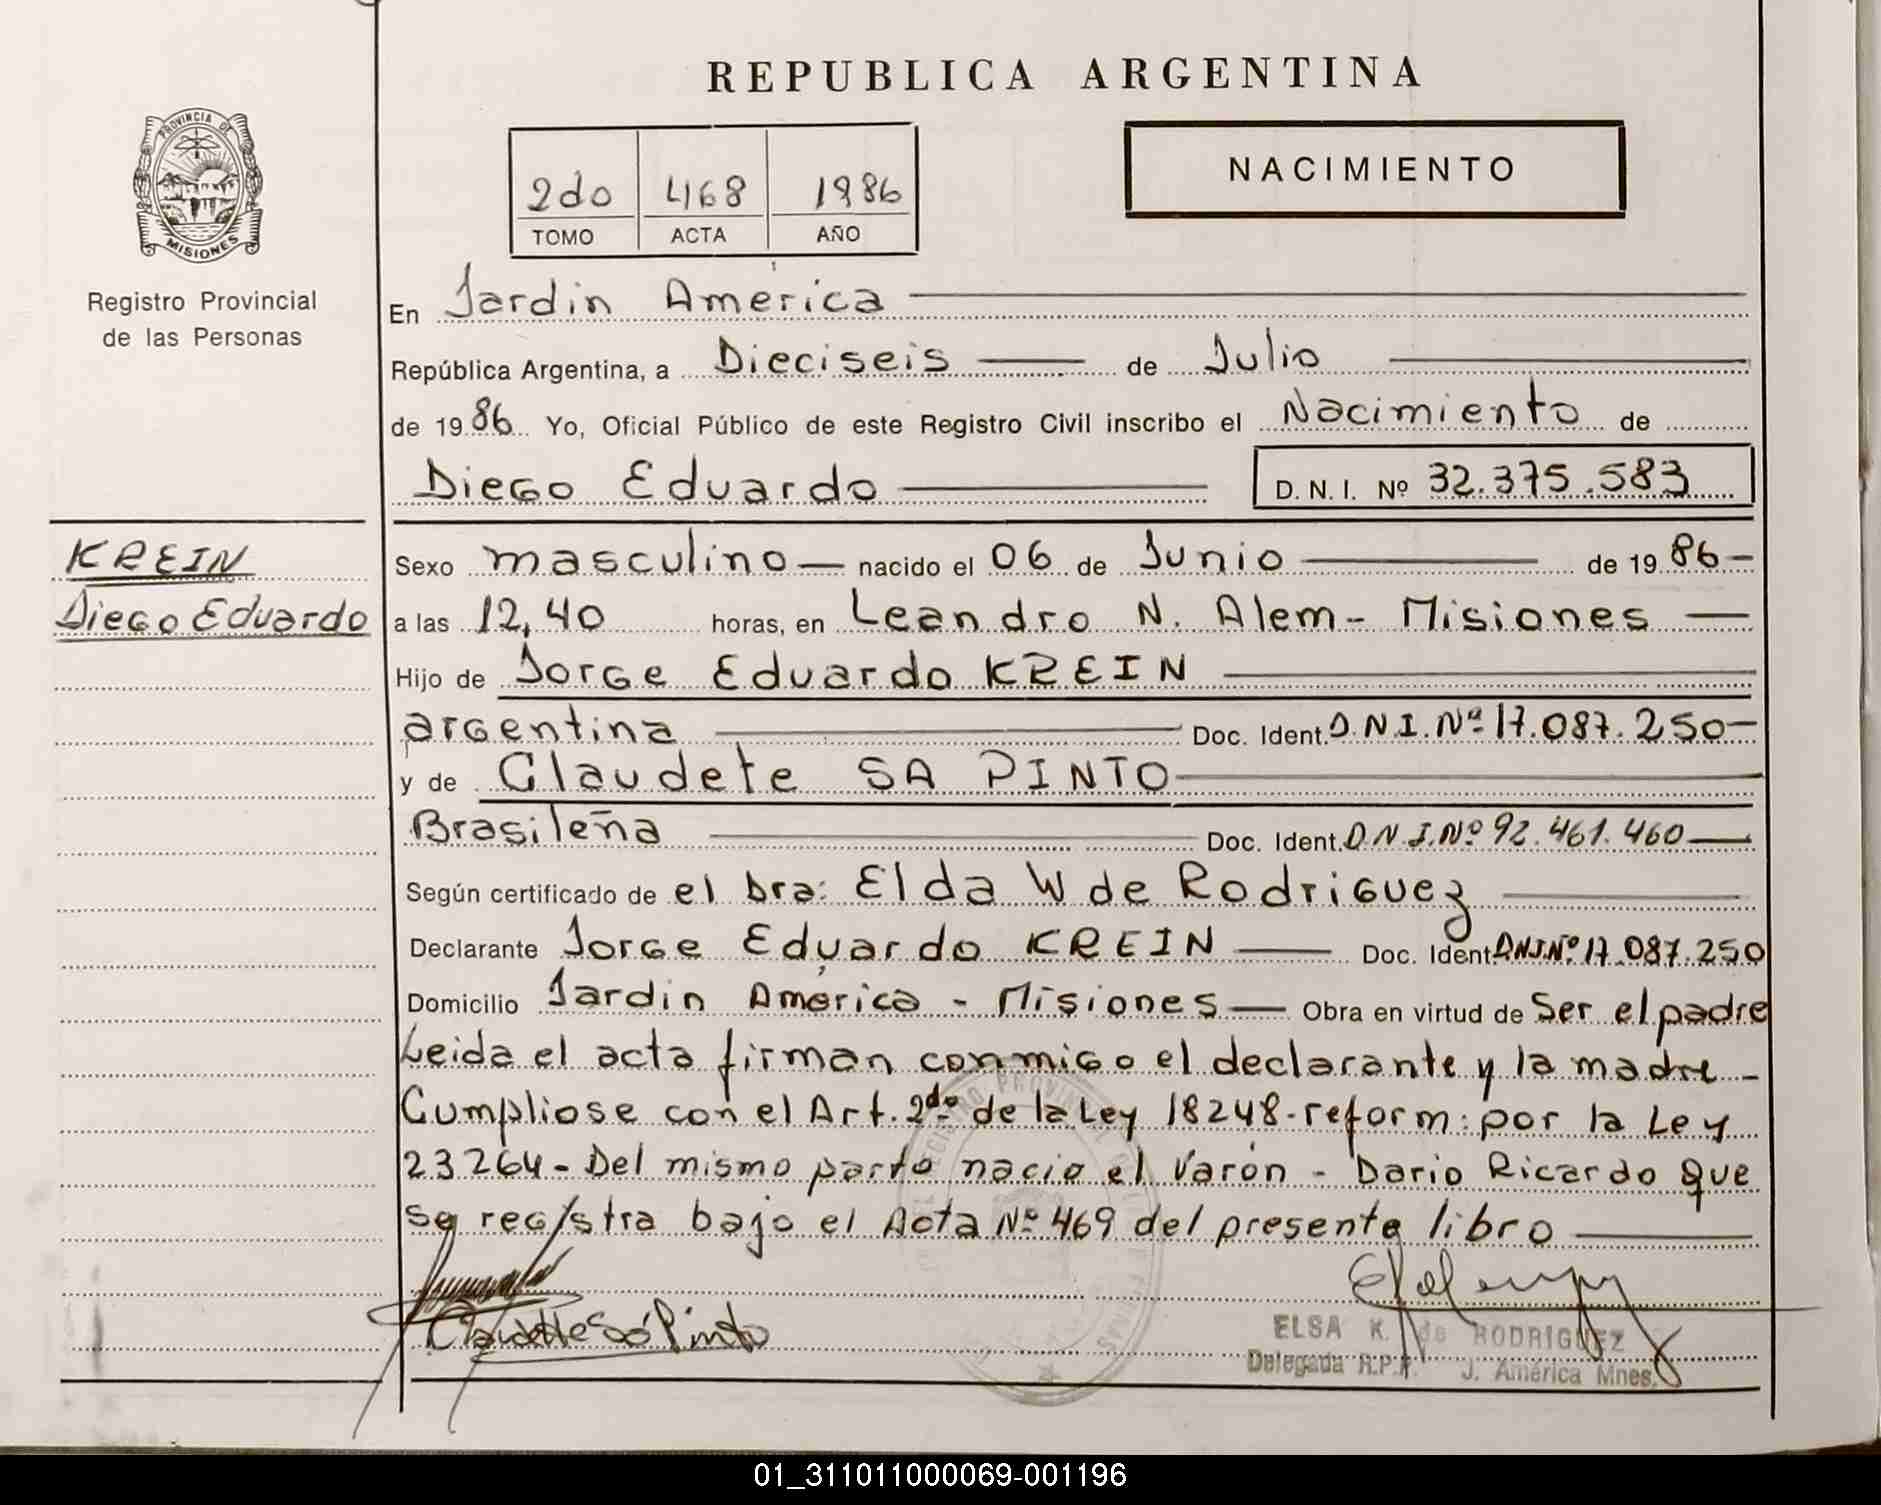 REPUBLICA ARGENTINA
PROVINCIA DE
MISIONES
Registro Provincial
de las Personas
2do 468 1986
TOMO ACTA AÑO
NACIMIENTO
En Jardin America
República Argentina, a Dieciseis de Julio
de 1986 Yo, Oficial Público de este Registro Civil inscribo el Nacimiento de
Diego Eduardo D. N. I. Nº 32.375.583
KREIN
Diego Eduardo
Sexo masculino nacido el 06 de Junio de 1986
a las 12,40 horas, en Leandro N. Alem - Misiones
Hijo de Jorge Eduardo KREIN
argentina Doc. Ident. D.N.I.Nº 17.087.250
y de Claudete SA PINTO
Brasileña Doc. Ident. D.N.I.Nº 92.461.460
Según certificado de el Dra: Elda W de Rodriguez
Declarante Jorge Eduardo KREIN Doc. Ident. DNI.Nº 17.087.250
Domicilio Jardin America - Misiones Obra en virtud de Ser el padre
Leida el acta firman conmigo el declarante y la madre -
Cumpliose con el Art. 2do de la Ley 18248 - reform: por la Ley
23264 - Del mismo parto nacio el Varón - Dario Ricardo que
se registra bajo el Acta Nº 469 del presente libro
Claudete Sá Pinto
ELSA K. de RODRIGUEZ
Delegada R.P.P. J. América Mnes.
01_311011000069-001196